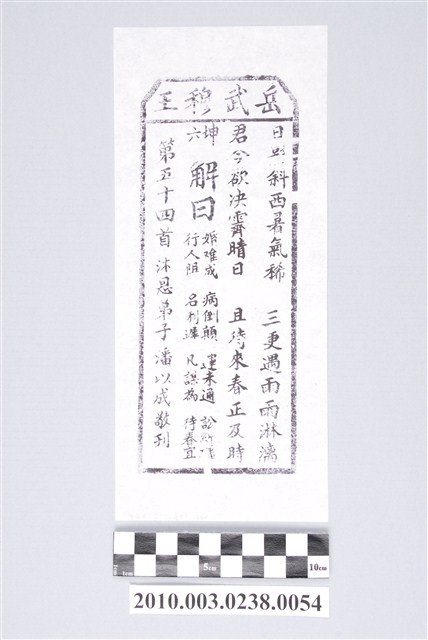 岳武穆王
日照斜西暑氣稀 三更遇雨雨淋漓
君今欲決霽晴日 且待來春正及時
坤六
解曰
婚难成 病倒顛 運未通 訟
行人阻 名利遲 凡謀為 待春宜
第五十四首 沐恩弟子潘以成敬刊
5cm
10cm
2010.003.0238.0054